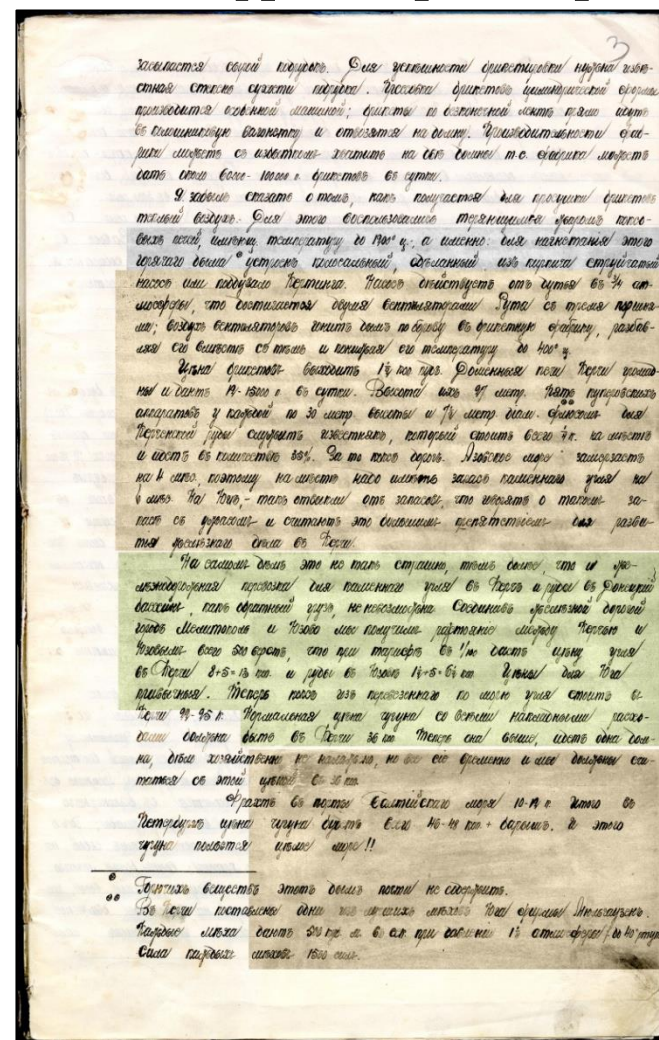 3
засыпается сырой порошок. Для успешности брикетировки нужна извѣ-
стная степень сухости порошка. Прессовка брикетовъ цилиндрической формы
производится особенной машиной; брикеты по безконечной лентѣ прямо идутъ
въ колошниковую вагонетку и отвозятся на домну. Производительности фаб-
рики можетъ съ избыткомъ хватить на двѣ домны т.е. фабрика можетъ
дать около 8000-10000 п. брикетовъ въ сутки.
Я забылъ сказать о томъ, какъ получается для просушки брикетовъ
теплый воздухъ. Для этого воспользовались теряющимся жаромъ коксо-
выхъ печей, имѣющ. температуру до 1400° ц., а именно: для нагнетанія этого
горячаго дыма устроенъ колосальный, сдѣланный изъ кирпича струйчатый
насосъ или поддувало Кертинга. Насосъ дѣйствуетъ отъ дутья въ ¾ ат-
мосферы, что достигается двумя вентиляторами Рута съ тремя поршня-
ми; воздухъ вентиляторовъ гонитъ дымъ по борову въ брикетную фабрику, разбав-
ляя его вмѣстѣ съ тѣмъ и понижая его температуру до 400° ц.
Цѣна брикетовъ выходитъ коп. пуд. Доменныя печи Керчи громад-
ны и даютъ 14-15000 п. въ сутки. Высота ихъ 27 метр. Пять куперовскихъ
аппаратовъ у каждой по 30 метр. высоты и 7½ метр. діам. Флюсомъ для
Керченской руды служитъ известнякъ, который стоитъ всего на мѣстѣ
и идетъ въ количествѣ 33%. За то коксъ дорогъ. Азовское море замерзаетъ
на 4 мѣс., поэтому на мѣстѣ надо имѣть запасъ каменнаго угля на
6 мѣс. На Югѣ, - такъ отвыкли отъ запасовъ, что говорятъ о такомъ за-
пасѣ съ ужасомъ и считаютъ это большимъ препятствіемъ для разви-
тія желѣзнаго дѣла въ Керчи.
На самомъ дѣлѣ это не такъ страшно, тѣмъ болѣе, что и же-
лѣзнодорожная перевозка для каменнаго угля въ Керчь и руды въ Донецкій
бассейнъ, какъ обратный грузъ, не невозможна. Соединивъ желѣзной дорогой
городъ Мелитополь и Юзово мы получимъ разстояніе между Керчью и
Юзовымъ всего 500 верстъ, что при тарифѣ въ дастъ цѣну угля
въ Керчи 8+5=13 коп. и руды въ Юзовѣ Цѣны для Юга
привычныя. Теперь коксъ изъ перевезеннаго по морю угля стоитъ въ
Керчи к. Нормальная цѣна чугуна со всѣми накладными расхо-
дами должна быть въ Керчи 36 коп. Теперь она выше, идетъ одна дом-
на, дѣло хозяйственно не налажено, но все сіе временно и мы должны счи-
таться съ этой цѣной въ 36 коп.
Фрахтъ въ порты Балтійскаго моря 10-12 к. Итого въ
Петербургѣ цѣна чугуна будетъ всего 46-48 коп. + барышъ. И этого
чугуна польется цѣлое море!!
Горючихъ веществъ этотъ дымъ почти не содержитъ.
Въ Керчи поставлены однѣ изъ лучшихъ мѣховъ Юга фирмы
Каждые мѣха даютъ 500 куб. м. въ при давленіи атмосферы
Сила каждыхъ мѣховъ 1500 силъ.